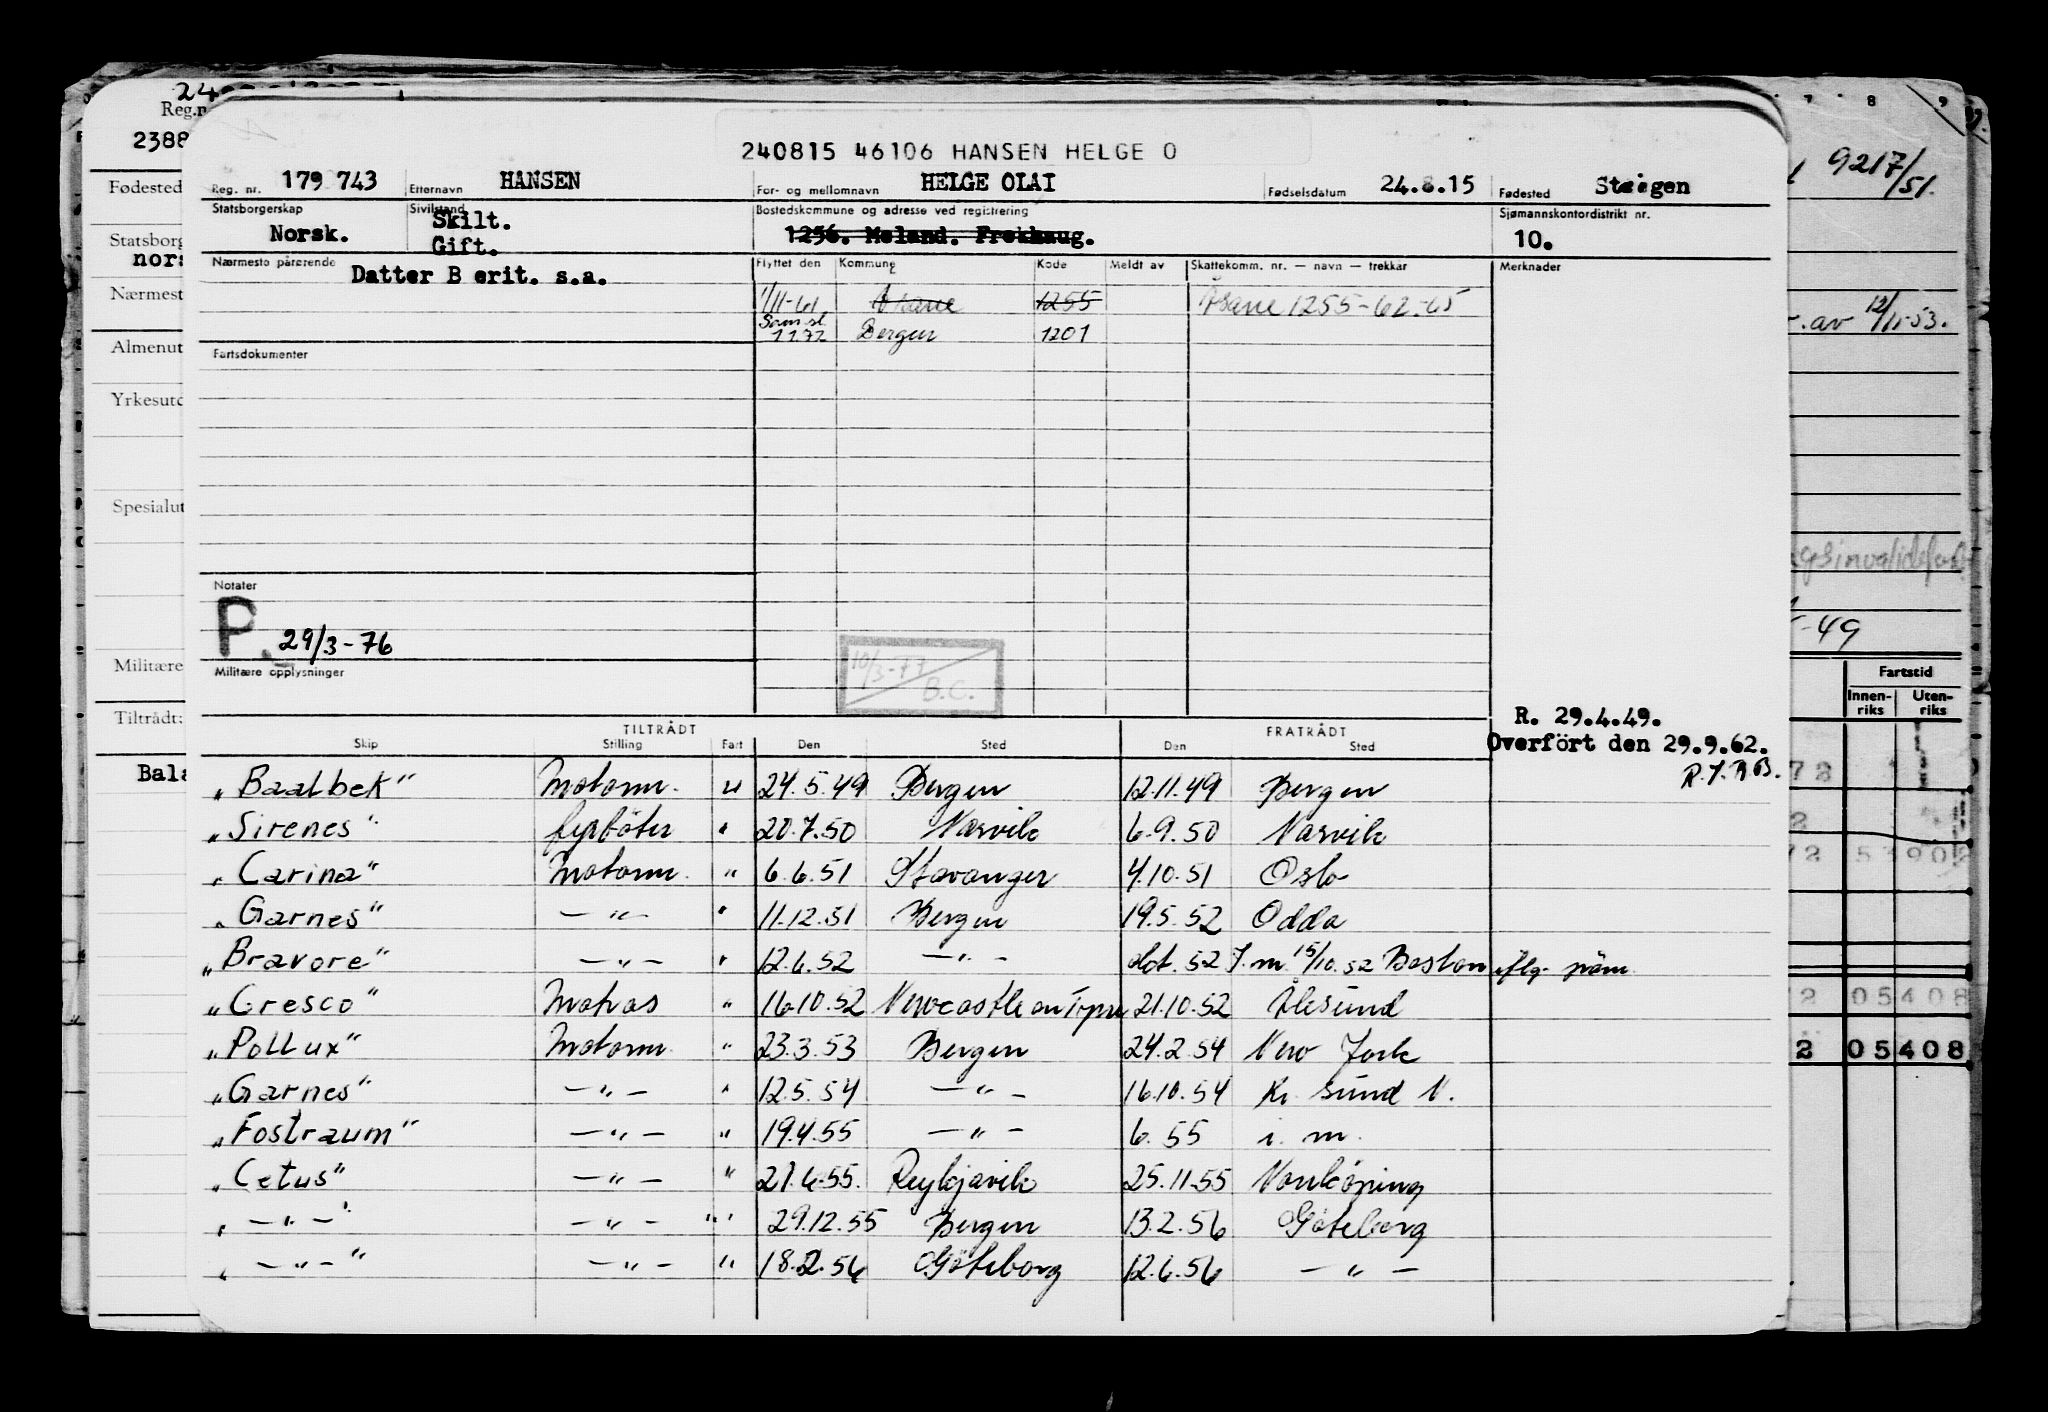 240815 46106 HANSEN HELGE O
Reg. nr. 179 743 Etternavn HANSEN For- og mellomnavn HELGE OLAI Fødselsdatum 24.8.15 Fødested Steigen
Statsborgerskap Norsk. Sivilstand Skilt. Gift. Bostedskommune og adresse ved registrering 1256. Meland. Frekhaug. Sjømannskontordistrikt nr. 10.
Nærmeste pårørende Datter B erit. s.a. Flyttet den Kommune Kode Meldt av Skattekomm. nr. — navn — trekkår Merknader
1/11-61 Åsane 1255 Åsane 1255-62-65
Sam.sl. 1172 Bergen 1201
Fartsdokumenter
Notater
P. 29/3-76
10/3-77 B.C.
Militære opplysninger
R. 29.4.49.
Overfört den 29.9.62.
TILTRÅDT FRATRÅDT
Skip Stilling Fart Den Sted Den Sted
"Baalbek" Motorm. U 24.5.49 Bergen 12.11.49 Bergen
"Sirenes" fyrböter " 20.7.50 Narvik 6.9.50 Narvik
"Carina" Motorm. " 6.6.51 Stavanger 4.10.51 Oslo
"Garnes" —"— " 11.12.51 Bergen 19.5.52 Odda
"Bravore" —"— " 12.6.52 —"— Okt. 52 I.m. 15/10.52 Boston
"Cresco" Matros " 16.10.52 Newcastle on Tyne 21.10.52 Ålesund
"Pollux" Motorm. " 23.3.53 Bergen 24.2.54 New York
"Garnes" —"— " 12.5.54 —"— 16.10.54 Kr. sund N.
"Fostraum" —"— " 19.4.55 —"— 6.55 i. m.
"Cetus" —"— " 21.6.55. Reykjavik 25.11.55 Norrköping
"—"—" —"— " 29.12.55 Bergen 13.2.56 Göteborg
"—"—" —"— " 18.2.56 Göteborg 12.6.56 —"—
Reg.n
2388
Fødested
Statsborg
nors
Nærmest
Almenut
Yrkesutd
Spesialut
Militære
Tiltrådt:
Bala
7 8 9
9217/51.
r. av 12/11-53.
-49
Fartstid
Innenriks Utenriks
72
2
72
2 05408
2 05408